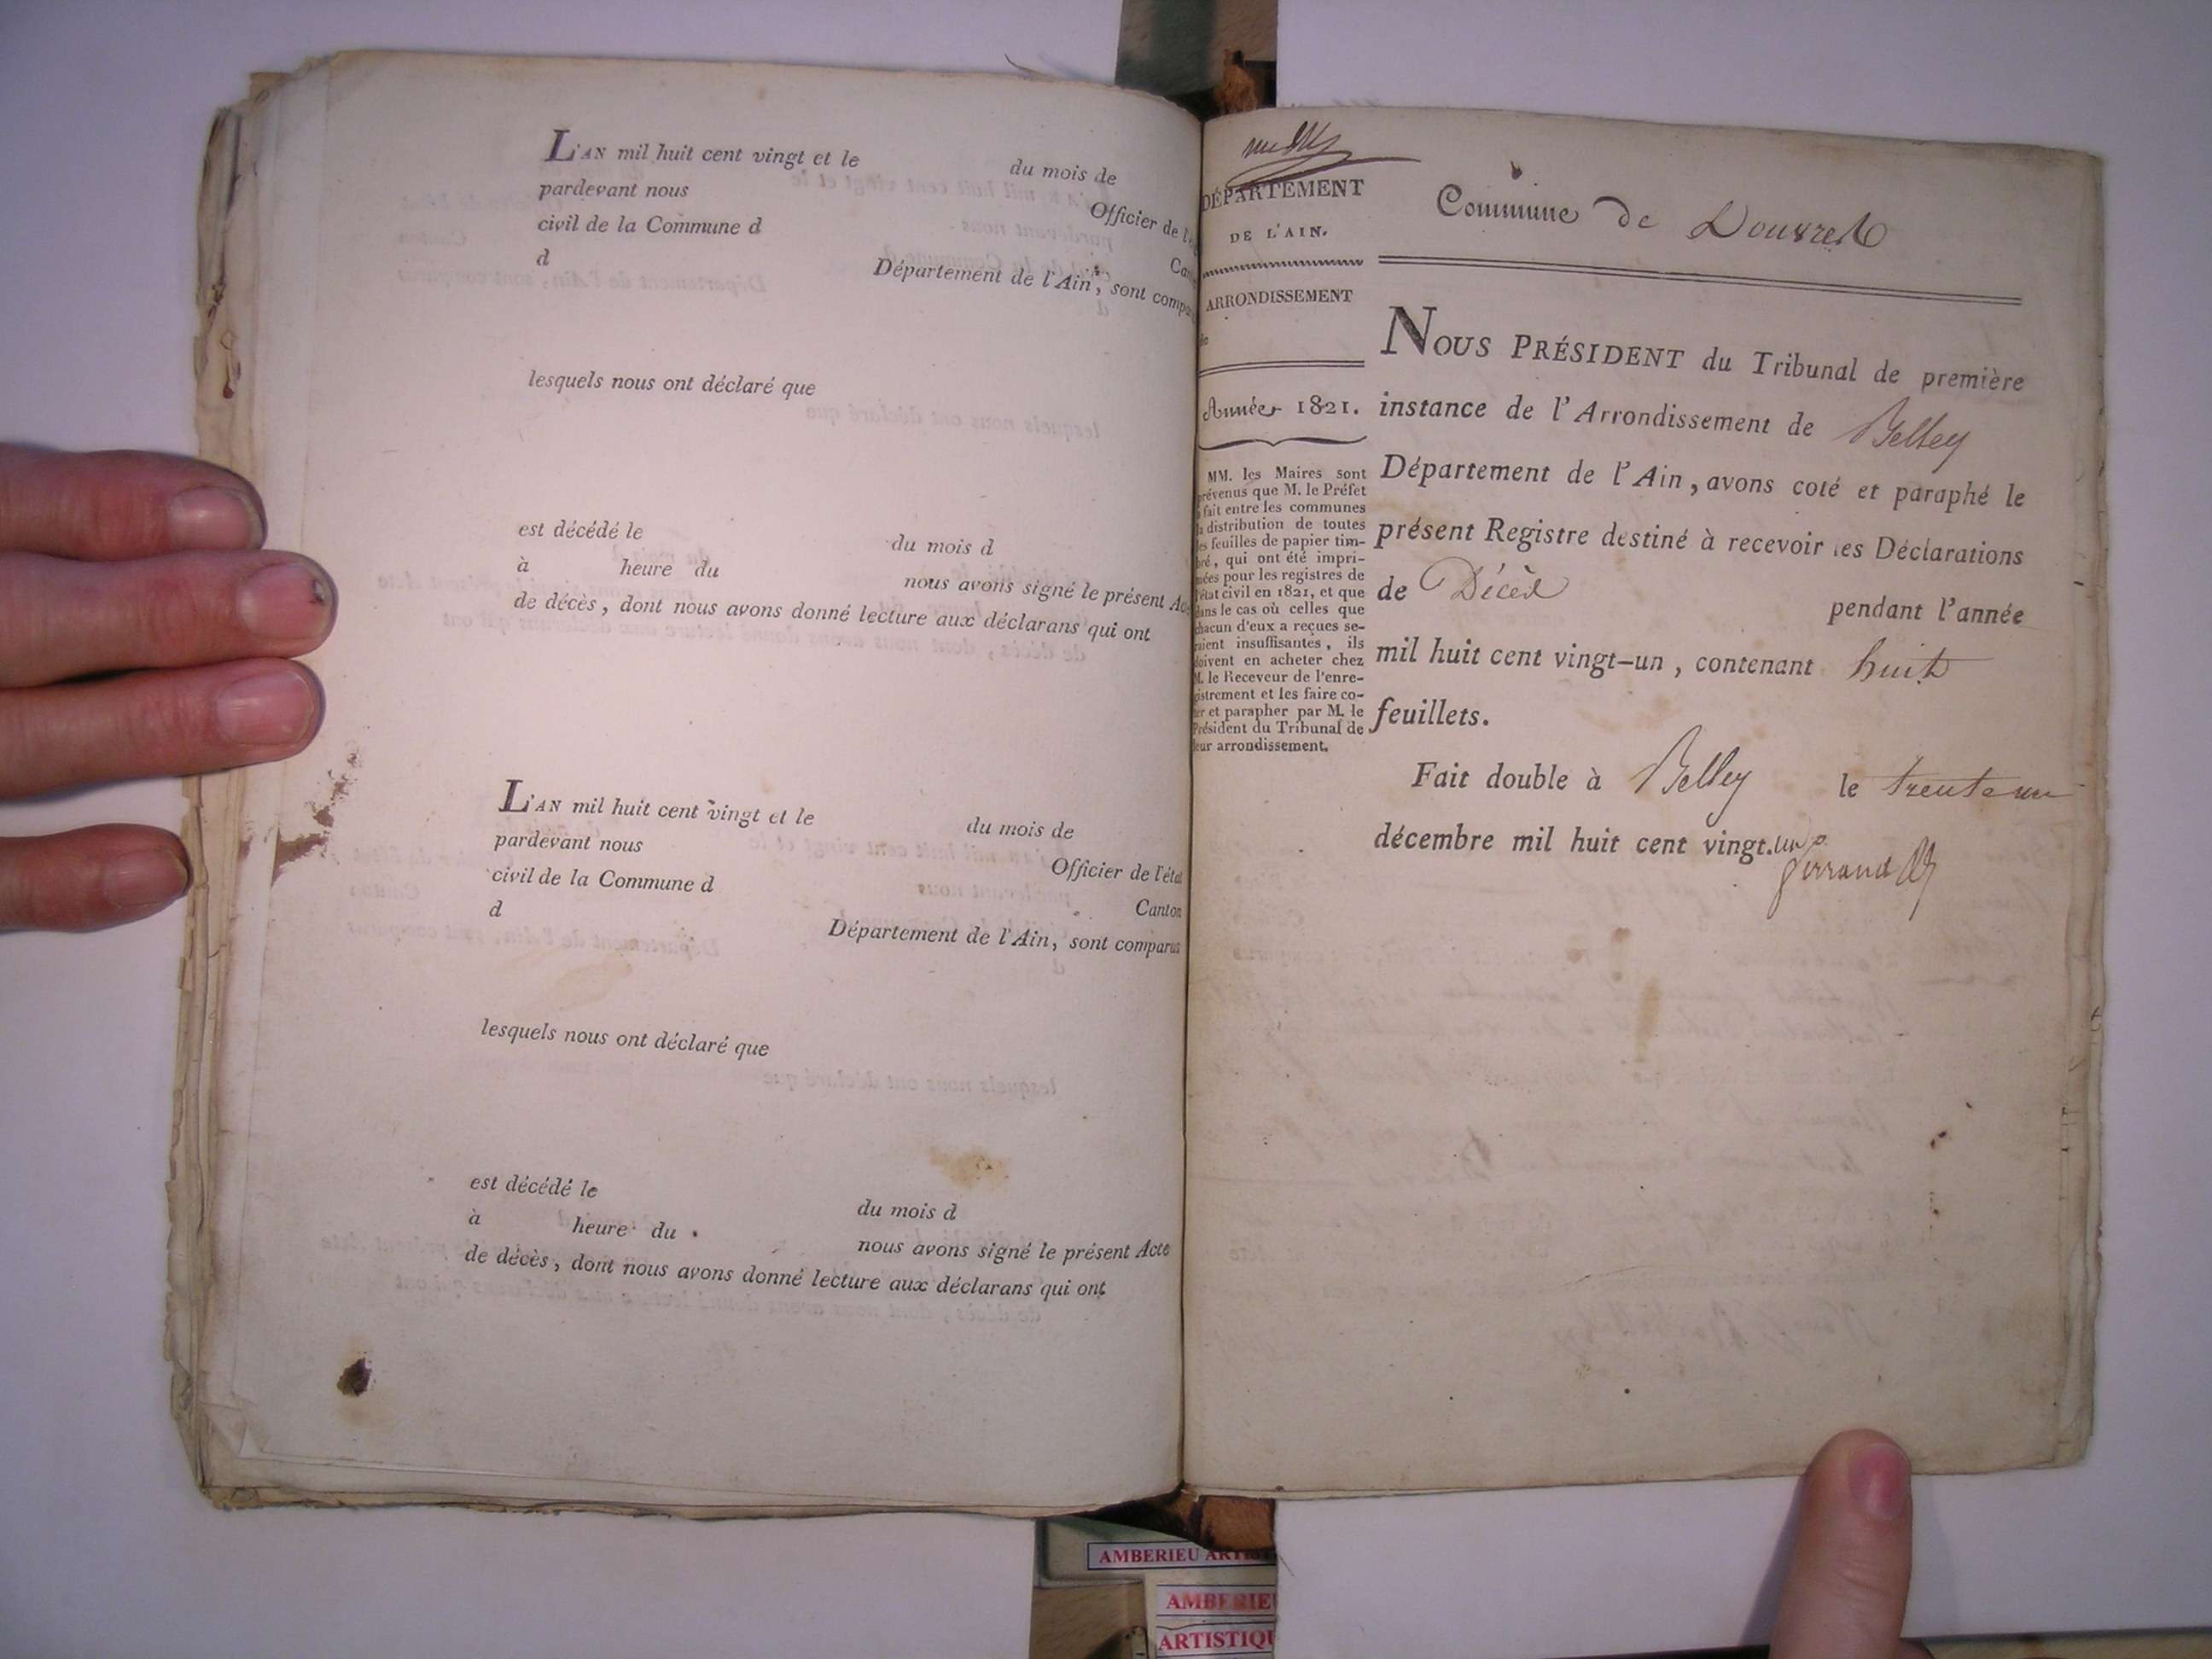 L'AN mil huit cent vingt et le du mois de
pardevant nous Officier de l'é
civil de la Commune d Can
d Département de l'Ain, sont compa
lesquels nous ont déclaré que
est décédé le du mois d
à heure du nous avons signé le présent Ac
de décès, dont nous avons donné lecture aux déclarans qui ont
L'AN mil huit cent vingt et le du mois de
pardevant nous Officier de l'état
civil de la Commune d Canton
d Département de l'Ain, sont comparus
lesquels nous ont déclaré que
est décédé le du mois d
à heure du nous avons signé le présent Acte
de décès, dont nous avons donné lecture aux déclarans qui ont
DÉPARTEMENT
DE L'AIN.
ARRONDISSEMENT
de
Année 1821.
MM. les Maires sont
prévenus que M. le Préfet
a fait entre les communes
la distribution de toutes
les feuilles de papier tim-
bré, qui ont été impri-
mées pour les registres de
l'état civil en 1821, et que
dans le cas où celles que
chacun d'eux a reçues se-
raient insuffisantes, ils
doivent en acheter chez
M. le Receveur de l'enre-
gistrement et les faire co-
ter et parapher par M. le
Président du Tribunal de
leur arrondissement.
Commune de Douvres
NOUS PRÉSIDENT du Tribunal de première
instance de l'Arrondissement de Belley
Département de l'Ain, avons coté et paraphé le
présent Registre destiné à recevoir les Déclarations
de Décès pendant l'année
mil huit cent vingt-un, contenant huit
feuillets.
Fait double à Belley le trente un
décembre mil huit cent vingt. un
AMBERIEU ARTIST
AMBERIEU
ARTISTIQU